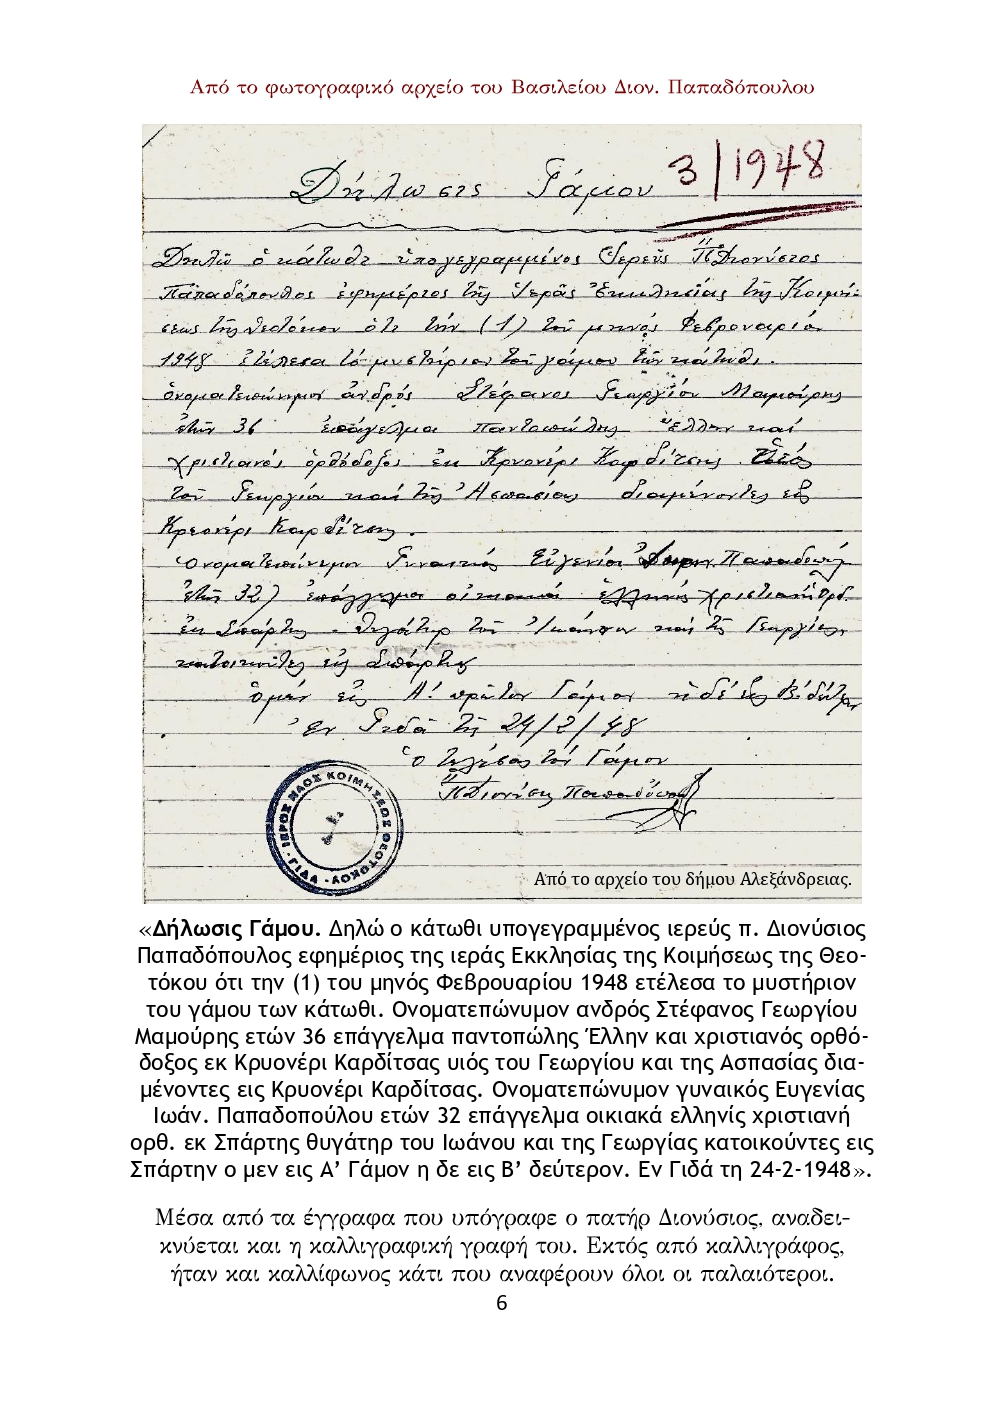 Από το φωτογραφικό αρχείο του Βασιλείου Διον. Παπαδόπουλου
Δήλωσις Γάμου 3/1948
Δηλῶ ὁ κάτωθι ὑπογεγραμμένος Ἱερεῦς Π Διονύσιος
Παπαδόπουλος ἐφημέριος τῆς Ἱερᾶς Ἐκκλησίας τῆς Κοιμή-
σεως τῆς Θεοτόκου ὅτι τήν (1) τοῦ μηνός Φεβρουαρίου
1948 ἐτέλεσα τό μυστήριον τοῦ γάμου τῶν κάτωθι.
ὀνοματεπώνυμον ἀνδρός Στέφανος Γεωργίου Μαμούρης
ἐτῶν 36 ἐπάγελμα παντοπώλης ἕλλην καί
χριστιανός ὀρθόδοξος ἐκ Κρυονέρι Καρδίτσης υἱός
τοῦ Γεωργίου καί τῆς Ἀσπασίας διαμένοντες εἰς
Κρεονέρι Καρδίτσης.
Ὀνοματεπώνυμον Γυναικός Εὐγενίας Παπαδοπού
ἐτῶν 32) ἐπάγγελμα οἰκιακά ἑλληνίς χριστιανή ὀρθ.
ἐκ Σπάρτης - θυγάτηρ τοῦ Ἰωάννου καί τῆς Γεωργίας,
κατοικοῦντες εἰς Σπάρτην
ὁ μέν εἰς Α! πρῶτον Γάμον ἡ δέ εἰς Β! δεύτερον
Ἐν Γιδᾶ τῇ 24/2/48
Ὁ τελέσας τόν Γάμον
Π Διονύσης Παπαδόπου
ΙΕΡΟΣ ΝΑΟΣ ΚΟΙΜΗΣΕΩΣ ΘΕΟΤΟΚΟΥ · ΓΙΔΑ ·
Από το αρχείο του δήμου Αλεξάνδρειας.
«Δήλωσις Γάμου. Δηλώ ο κάτωθι υπογεγραμμένος ιερεύς π. Διονύσιος
Παπαδόπουλος εφημέριος της ιεράς Εκκλησίας της Κοιμήσεως της Θεο-
τόκου ότι την (1) του μηνός Φεβρουαρίου 1948 ετέλεσα το μυστήριον
του γάμου των κάτωθι. Ονοματεπώνυμον ανδρός Στέφανος Γεωργίου
Μαμούρης ετών 36 επάγγελμα παντοπώλης Έλλην και χριστιανός ορθό-
δοξος εκ Κρυονέρι Καρδίτσας υιός του Γεωργίου και της Ασπασίας δια-
μένοντες εις Κρυονέρι Καρδίτσας. Ονοματεπώνυμον γυναικός Ευγενίας
Ιωάν. Παπαδοπούλου ετών 32 επάγγελμα οικιακά ελληνίς χριστιανή
ορθ. εκ Σπάρτης θυγάτηρ του Ιωάνου και της Γεωργίας κατοικούντες εις
Σπάρτην ο μεν εις Α’ Γάμον η δε εις Β’ δεύτερον. Εν Γιδά τη 24-2-1948».
Μέσα από τα έγγραφα που υπόγραφε ο πατήρ Διονύσιος, αναδει-
κνύεται και η καλλιγραφική γραφή του. Εκτός από καλλιγράφος,
ήταν και καλλίφωνος κάτι που αναφέρουν όλοι οι παλαιότεροι.
6